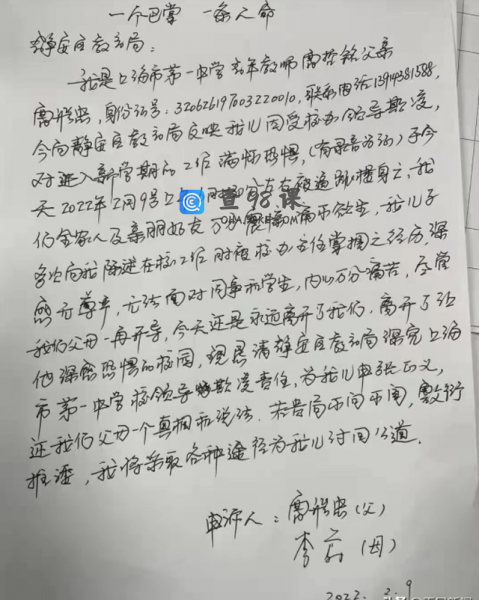 一个巴掌 一条人命
静安区教育局：
我是上海市第一中学青年教师 父亲
身份证号：320626197003220010，联系电话13914381588，
今向静安区教育局反映我儿因受校办领导欺凌，
对进入新学期的工作满怀恐惧，（有录音为证）于今
天2022年2月9号 左右 跳楼身亡，我
们全家人及亲朋好友万分 痛不欲生，我儿子
多次向我陈述在校工作时被校办主任掌掴之经历，深
感无尊严，无法面对同事和学生，内心万分痛苦，尽管
我们父母一再开导，今天还是永远离开了我们，离开了让
他深感恐惧的校园，现恳请静安区教育局深究上海
市第一中学校领导欺凌责任，为我儿申张正义，
还我们父母一个真相和说法．若贵局不闻不问，敷衍
推诿，我将采取各种途径为我儿讨回公道．
申诉人： （父）
李 （母）
2022. 2.9
查98课